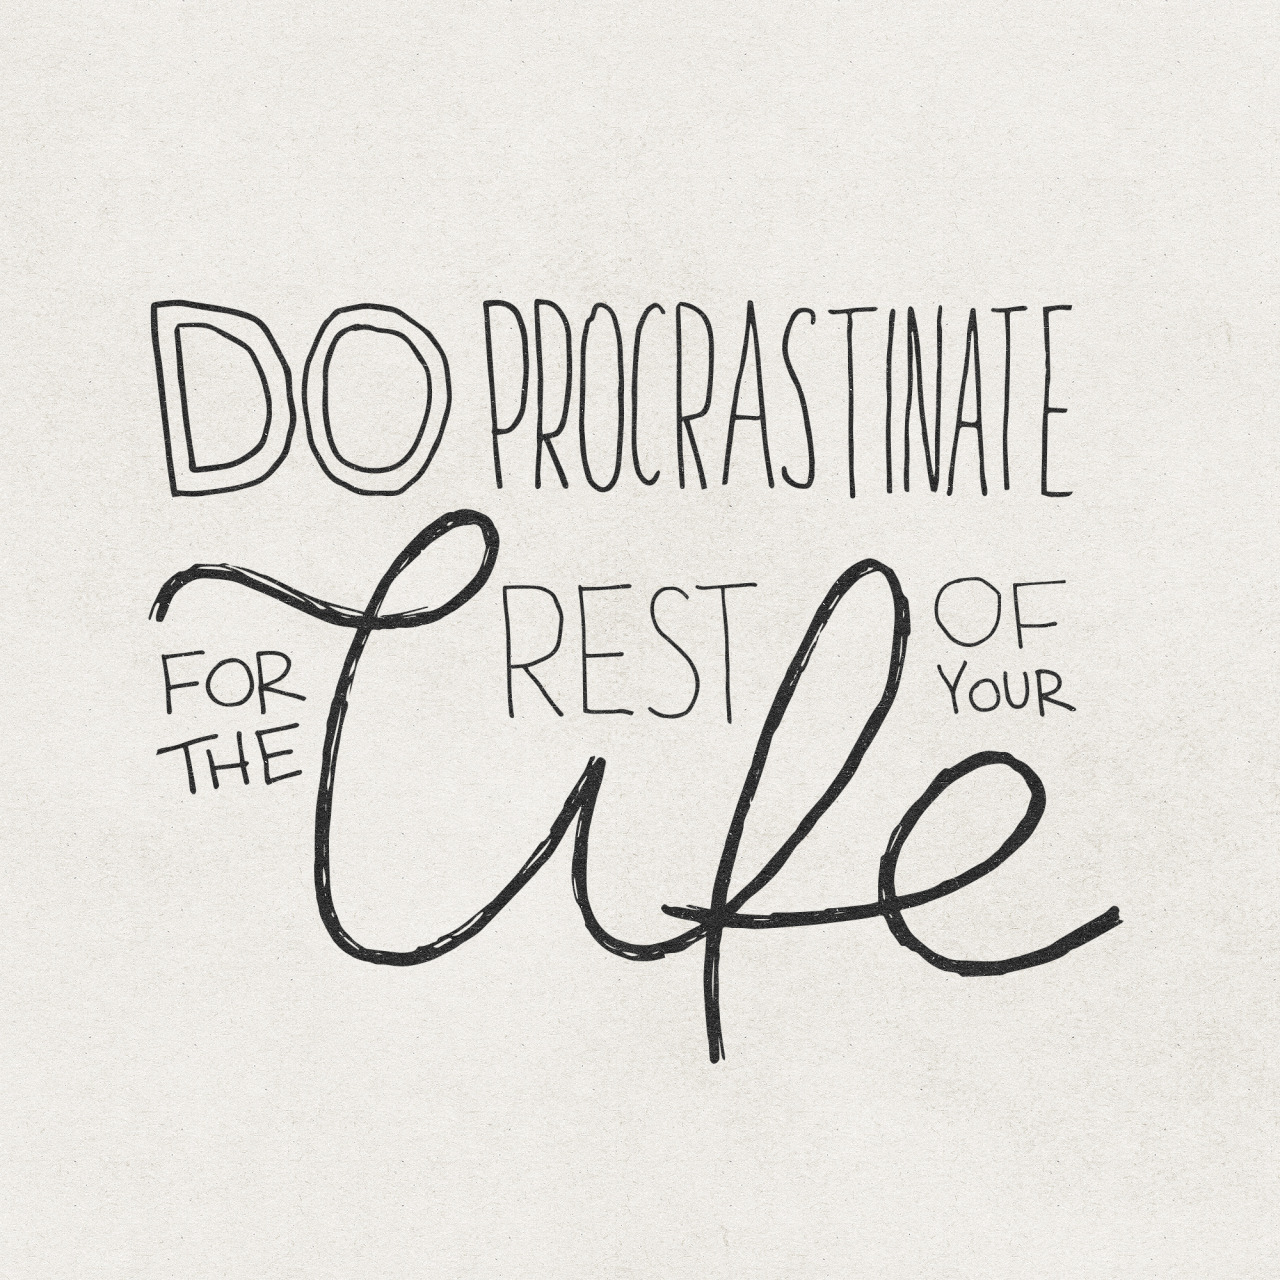 DO PROCRASTINATE
FOR THE REST OF YOUR
Life